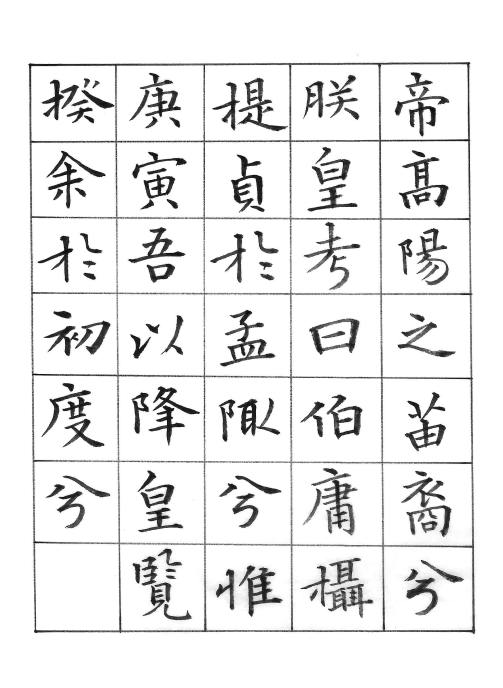 帝髙陽之苗裔兮
朕皇考曰伯庸攝
提貞於孟陬兮惟
庚寅吾以降皇覽
揆余於初度兮